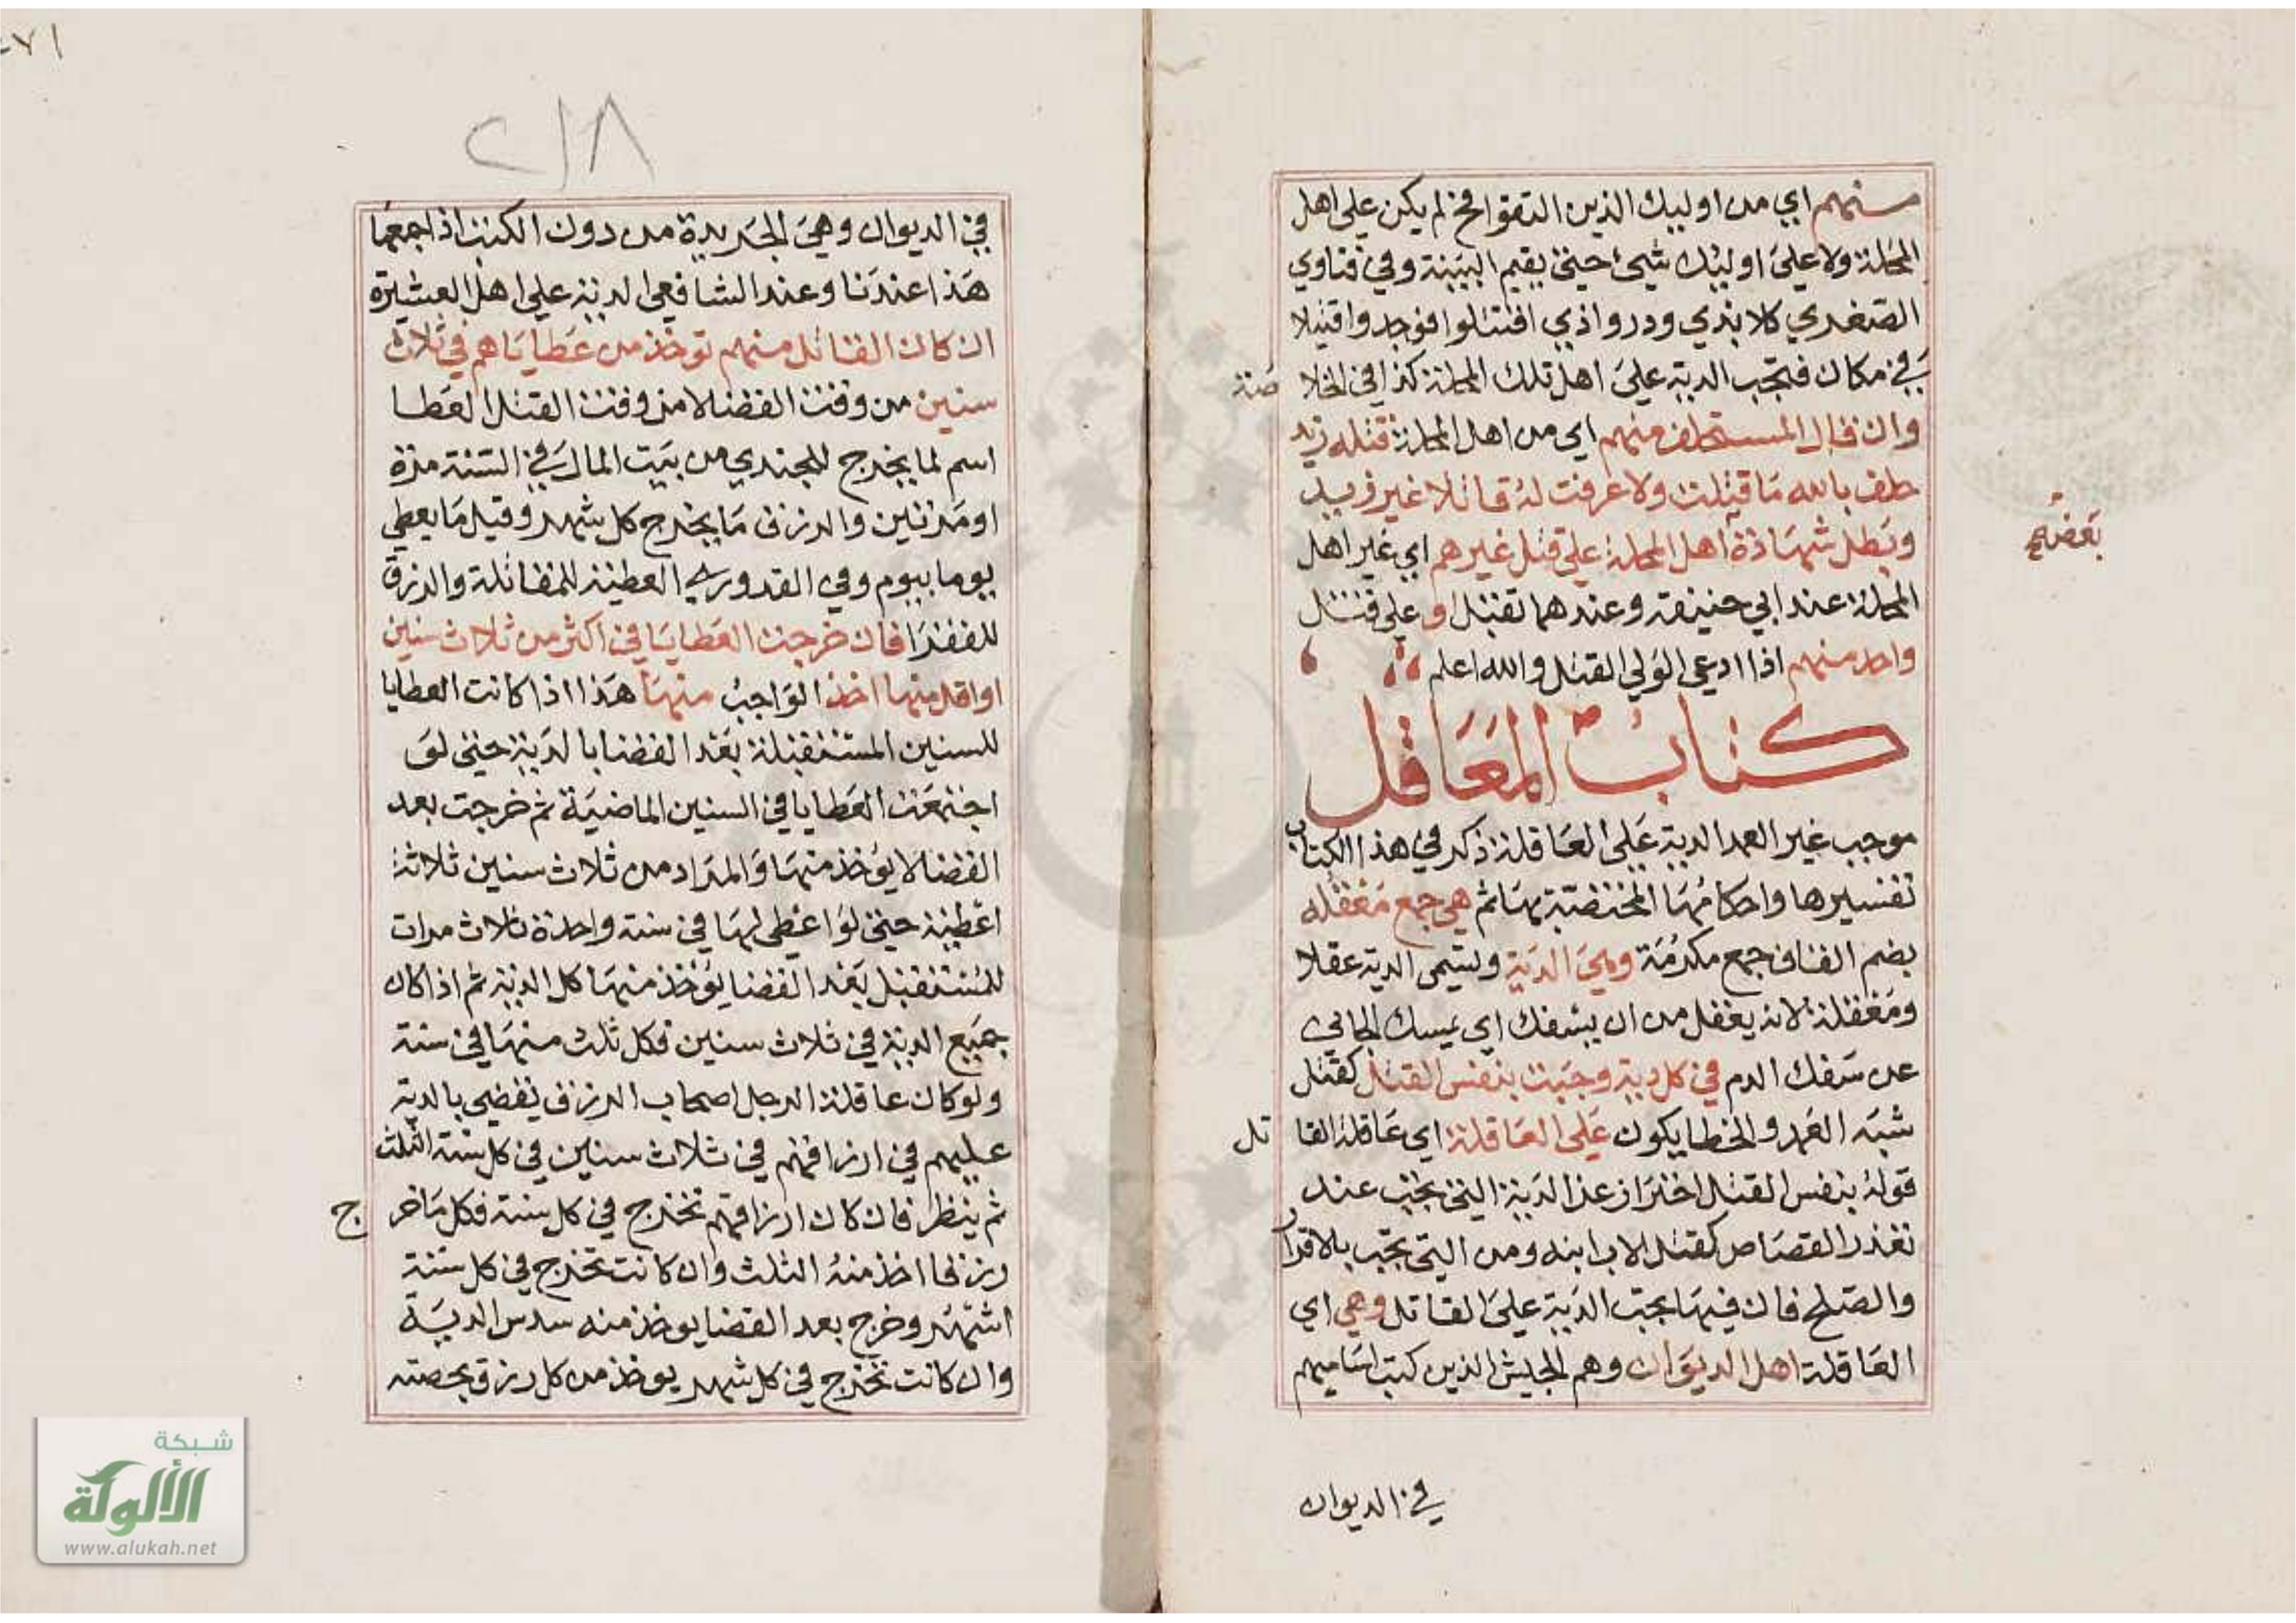 منهم اي من اوليك الذين التقوا فح لم يكن على اهل
المحلة ولا على اوليك شيء حتى يقيم البينة وفي فتاوي
الصغدي كلابذي ودرواذي اقتتلوا فوجدوا قتيلا
في مكان فتجب الدية على اهل تلك المحلة كذا في الخلا صة
وان قال المستحلف منهم اي من اهل المحلة قتله زيد
حلف بالله ما قتلت ولا عرفت له قاتلا غير زيد
وبطل شهادة اهل المحلة على قتل غيرهم اي غير اهل
بعضهم
المحلة عند ابي حنيفة وعندهما تقبل و على قتل
واحد منهم اذا ادعى الولي القتل والله اعلم
كتاب المعاقل
موجب غير العمد الدية على العاقلة ذكر في هذا الكتاب
تفسيرها واحكامها المختصة بها ثم هي جمع معقله
بضم القاف جمع مكرمة وهي الدية وتسمى الدية عقلا
ومعقلة لانه يعقل من ان يسفك اي يمسك الجاني
عن سفك الدم في كل دية وجبت بنفس القتل كقتل
شبه العمد والخطا يكون على العاقلة اي عاقلة القا تل
قوله بنفس القتل احتراز عن الدية التي تجب عند
تعذر القصاص كقتل الاب ابنه ومن التي تجب بالاقرار
والصلح فان فيها يجب الدية على القاتل وهي اي
العاقلة اهل الديوان وهم الجيش الذين كتب اساميهم
في الديوان
٢١٨
في الديوان وهي الجريدة من دون الكتب اذا جمعها
هذا عندنا وعند الشافعي الدية على اهل العشيرة
ان كان القاتل منهم توخذ من عطاياهم في ثلاث
سنين من وقت القضا لا من وقت القتل العطا
اسم لما يخرج للجندي من بيت المال في السنة مرة
او مرتين والرزق ما يخرج كل شهر وقيل ما يعطي
يوما بيوم وفي القدوري العطية للمقاتلة والرزق
للفقرا فان خرجت العطايا في اكثر من ثلاث سنين
او اقل منها اخذ الواجب منها هذا اذا كانت العطايا
للسنين المستقبلة بعد القضا بالدية حتى لو
اجتمعت العطايا في السنين الماضية ثم خرجت بعد
القضا لا يؤخذ منها والمراد من ثلاث سنين ثلاثة
اعطية حتى لو اعطى لها في سنة واحدة ثلاث مرات
للمستقبل بعد القضا يؤخذ منها كل الدية ثم اذا كان
جميع الدية في ثلاث سنين فكل ثلث منها في سنة
ولو كان عاقلة الرجل اصحاب الرزق يقضي بالدية
عليهم في ارزاقهم في ثلاث سنين في كل سنة الثلث
ثم ينظر فان كان ارزاقهم تخرج في كل سنة فكل ما خر ج
رزقا اخذ منه الثلث وان كانت تخرج في كل ستة
اشهر وخرج بعد القضا يوخذ منه سدس الدية
وان كانت تخرج في كل شهر يوخذ من كل رزق بحصته
شبكة
الألوكة
www.alukah.net